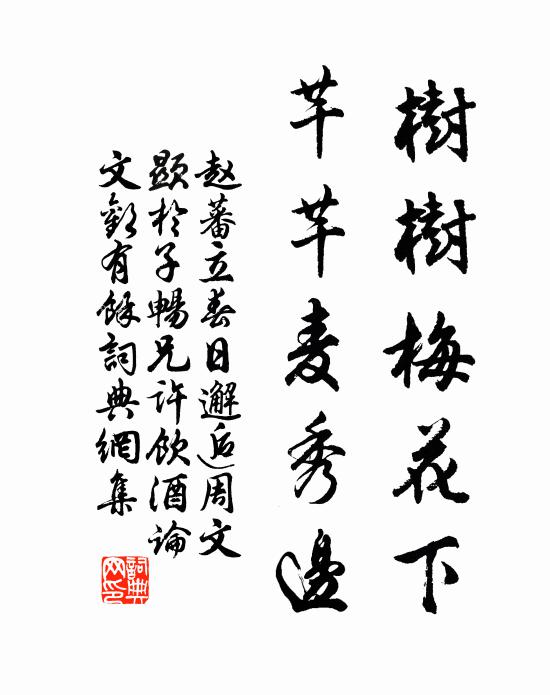 樹樹梅花下
芊芊麦秀邊
赵蕃立春日邂逅周文
顯於子暢兄许飲酒論
文歡有餘詞典網集
詞典网印